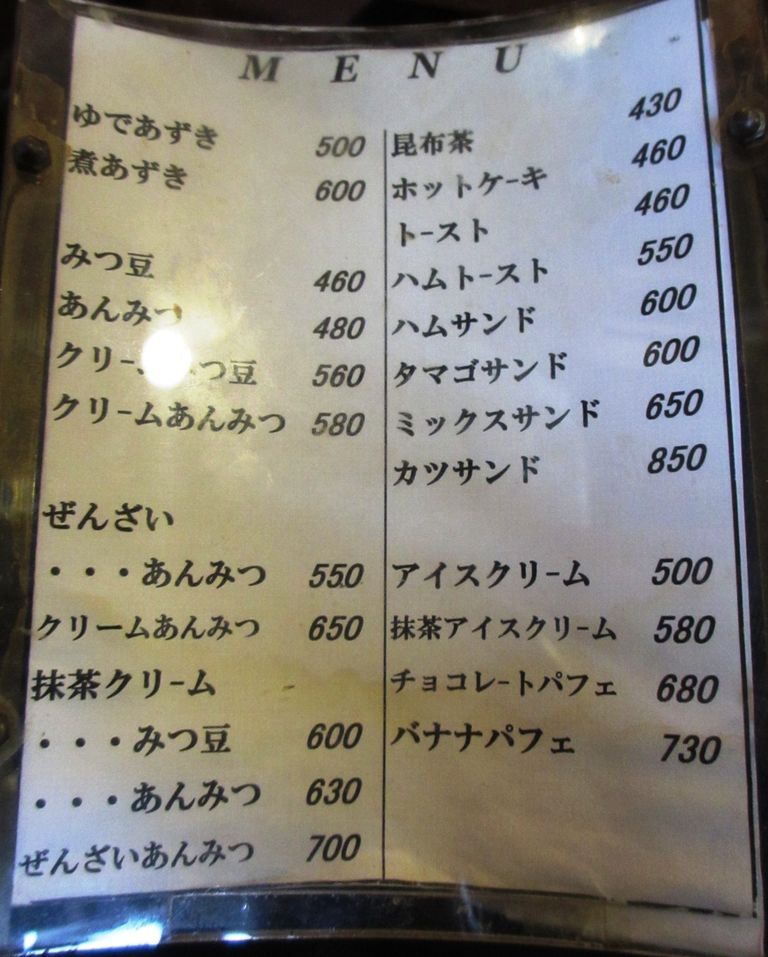 MENU
ゆであずき 500
煮あずき 600
みつ豆 460
あんみつ 480
クリー つ豆 560
クリームあんみつ 580
ぜんざい
・・・あんみつ 550
クリームあんみつ 650
抹茶クリーム
・・・みつ豆 600
・・・あんみつ 630
ぜんざいあんみつ 700
昆布茶 430
ホットケーキ 460
トースト 460
ハムトースト 550
ハムサンド 600
タマゴサンド 600
ミックスサンド 650
カツサンド 850
アイスクリーム 500
抹茶アイスクリーム 580
チョコレートパフェ 680
バナナパフェ 730